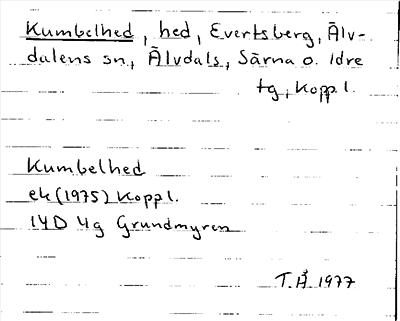 Kumbelhed, hed, Evertsberg, Älv-
dalens sn., Älvdals, Särna o. Idre
tg, Koppl.
Kumbelhed
ek (1975) Koppl.
14D 4g Grundmyren
T.Å. 1977